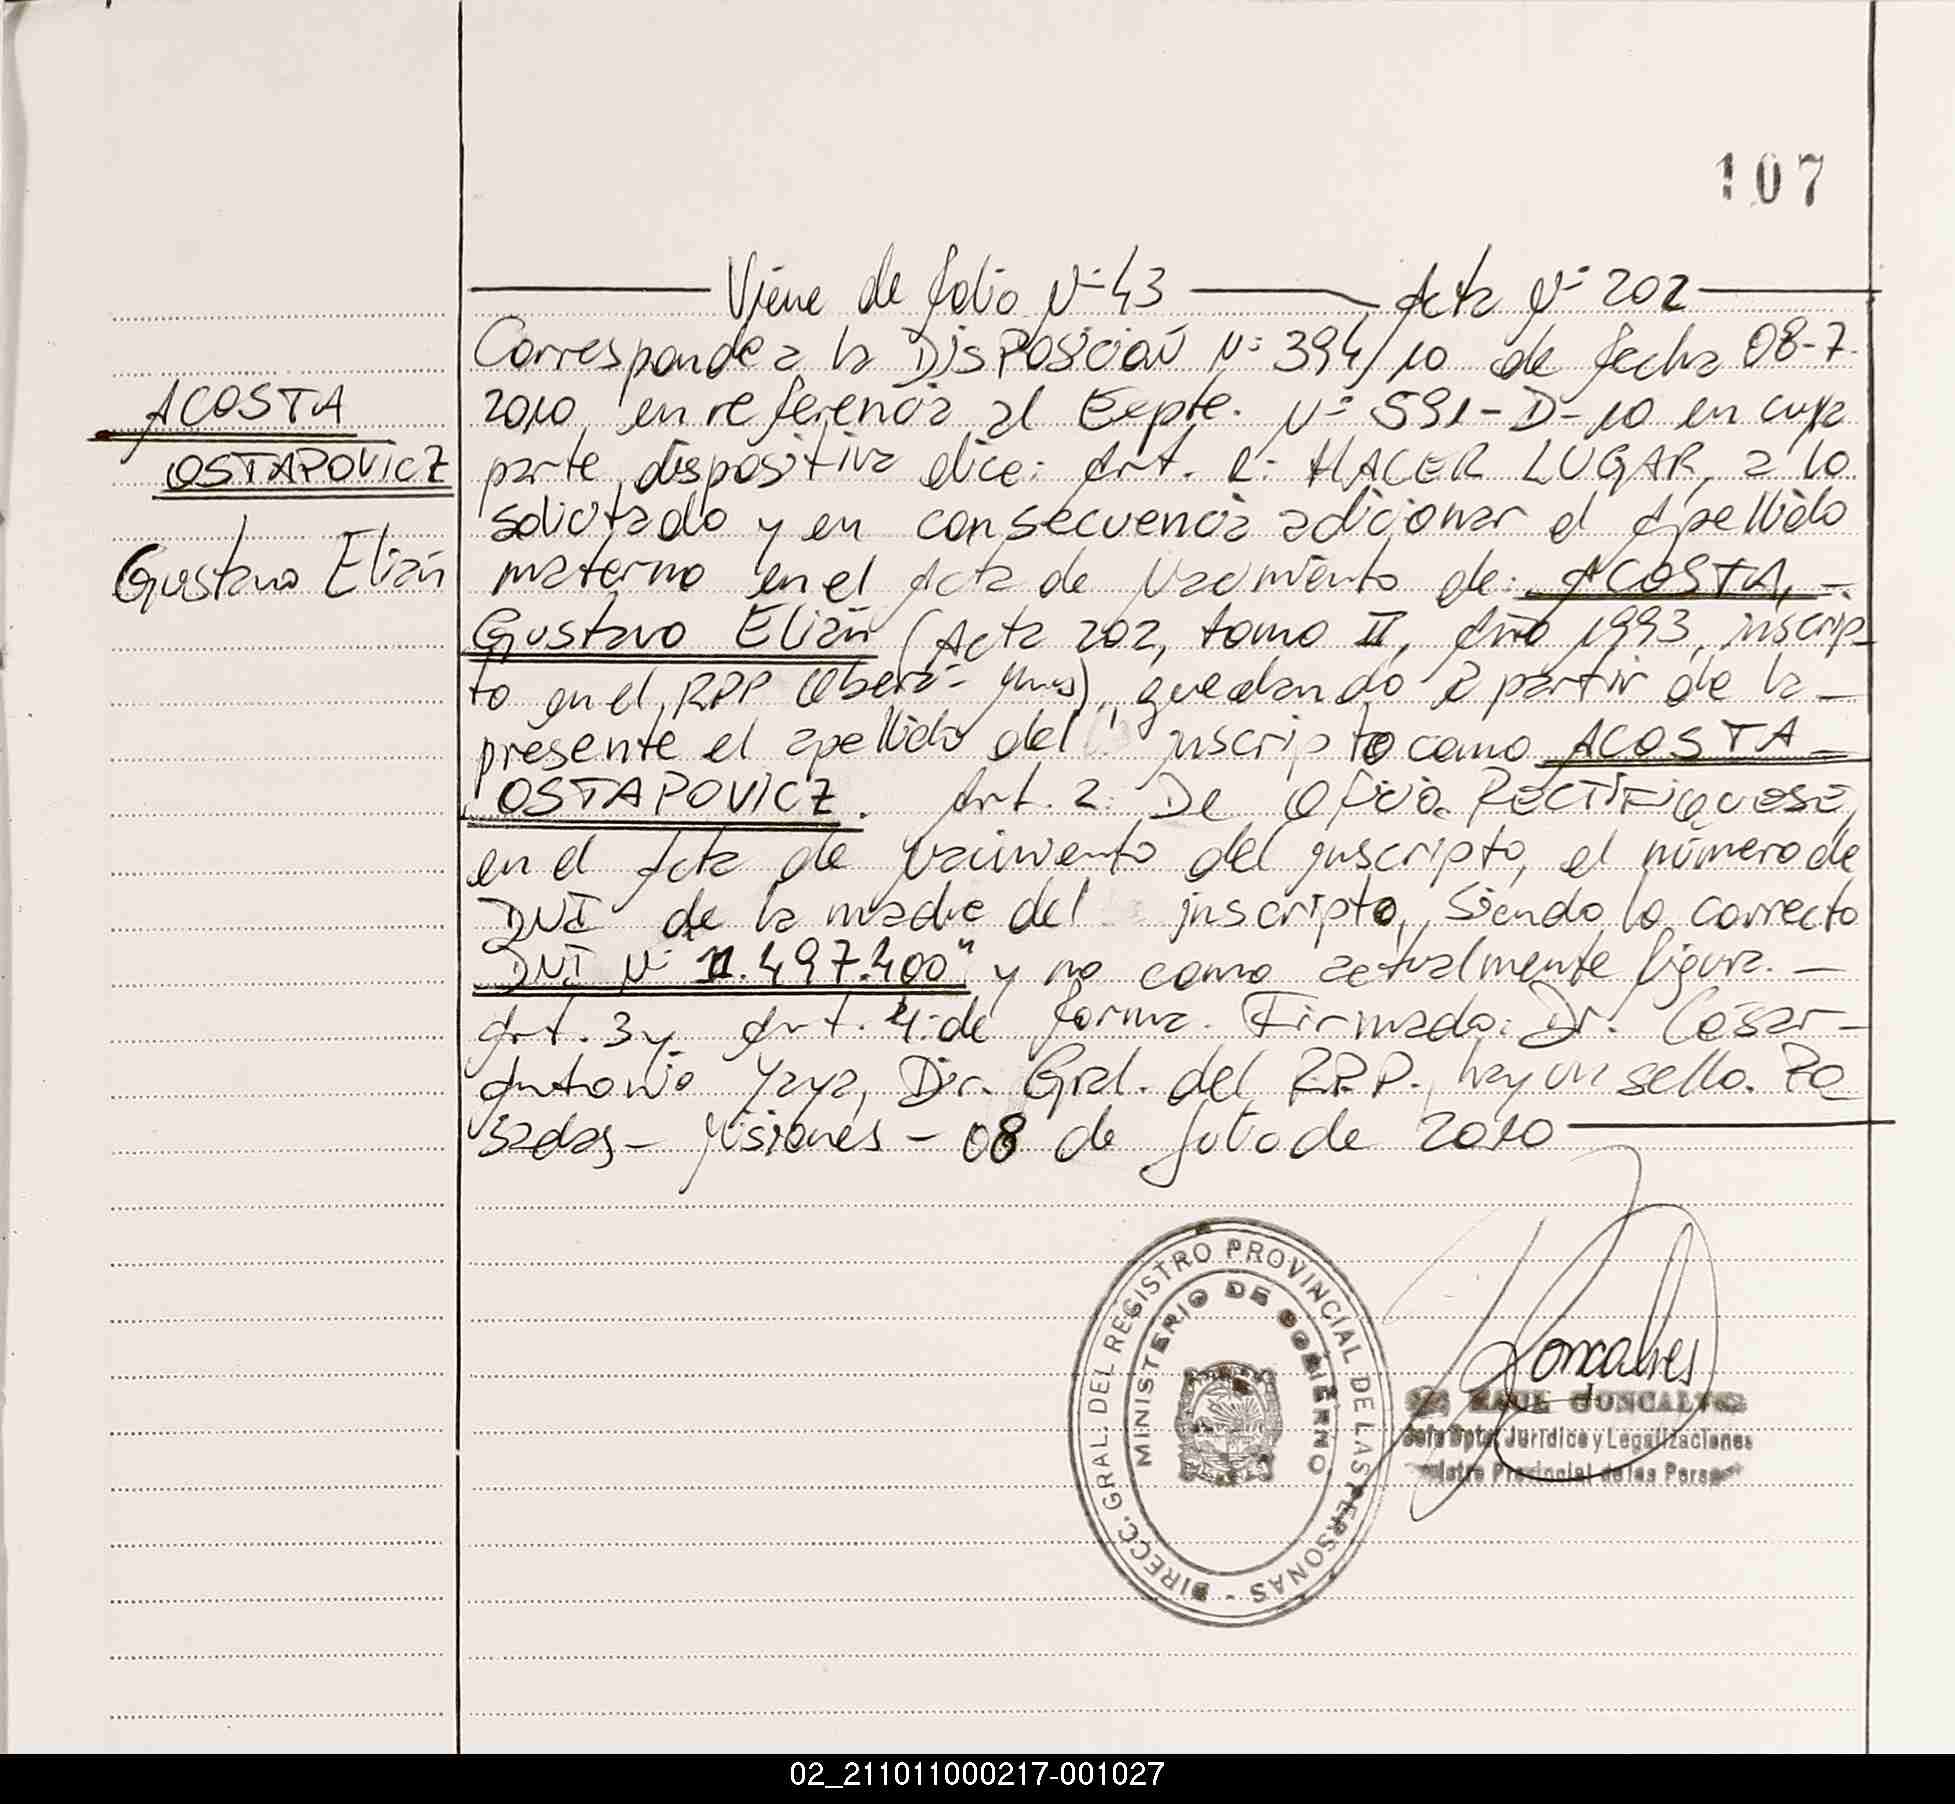 107
Viene de folio Nº 43 Acta Nº 202
Corresponde a la DISPOSICIÓN Nº 394/10 de fecha 08-7-
ACOSTA
2010, en referencia al Expte. Nº 591-D-10 en cuya
OSTAPOVICZ
parte dispositiva dice: Art. 1: HACER LUGAR, a lo
solicitado y en consecuencia adicionar el Apellido
Gustavo Elián
materno en el Acta de Nacimiento de: ACOSTA, -
Gustavo Elián (Acta 202, tomo II, Año 1993, inscrip-
to en el RPP Oberá - Mnes), quedando a partir de la -
presente el apellido del inscripto como ACOSTA -
OSTAPOVICZ. Art. 2: De Oficio RECTIFIQUESE,
en el Acta de Nacimiento del inscripto, el número de
DNI de la madre del inscripto, siendo lo correcto
DNI Nº 11.497.400" y no como actualmente figura. -
Art. 3 y Art. 4: de forma. Firmado: Dr. César -
Antonio Yaya, Dir. Gral. del R.P.P., hay un sello. Po
sadas - Misiones - 08 de Julio de 2010
DIRECC. GRAL. DEL REGISTRO PROVINCIAL DE LAS PERSONAS -
MINISTERIO DE GOBIERNO
Goncalves
RAUL GONCALVES
Jefe Dpto. Jurídico y Legalizaciones
Registro Provincial de las Personas
02_211011000217-001027